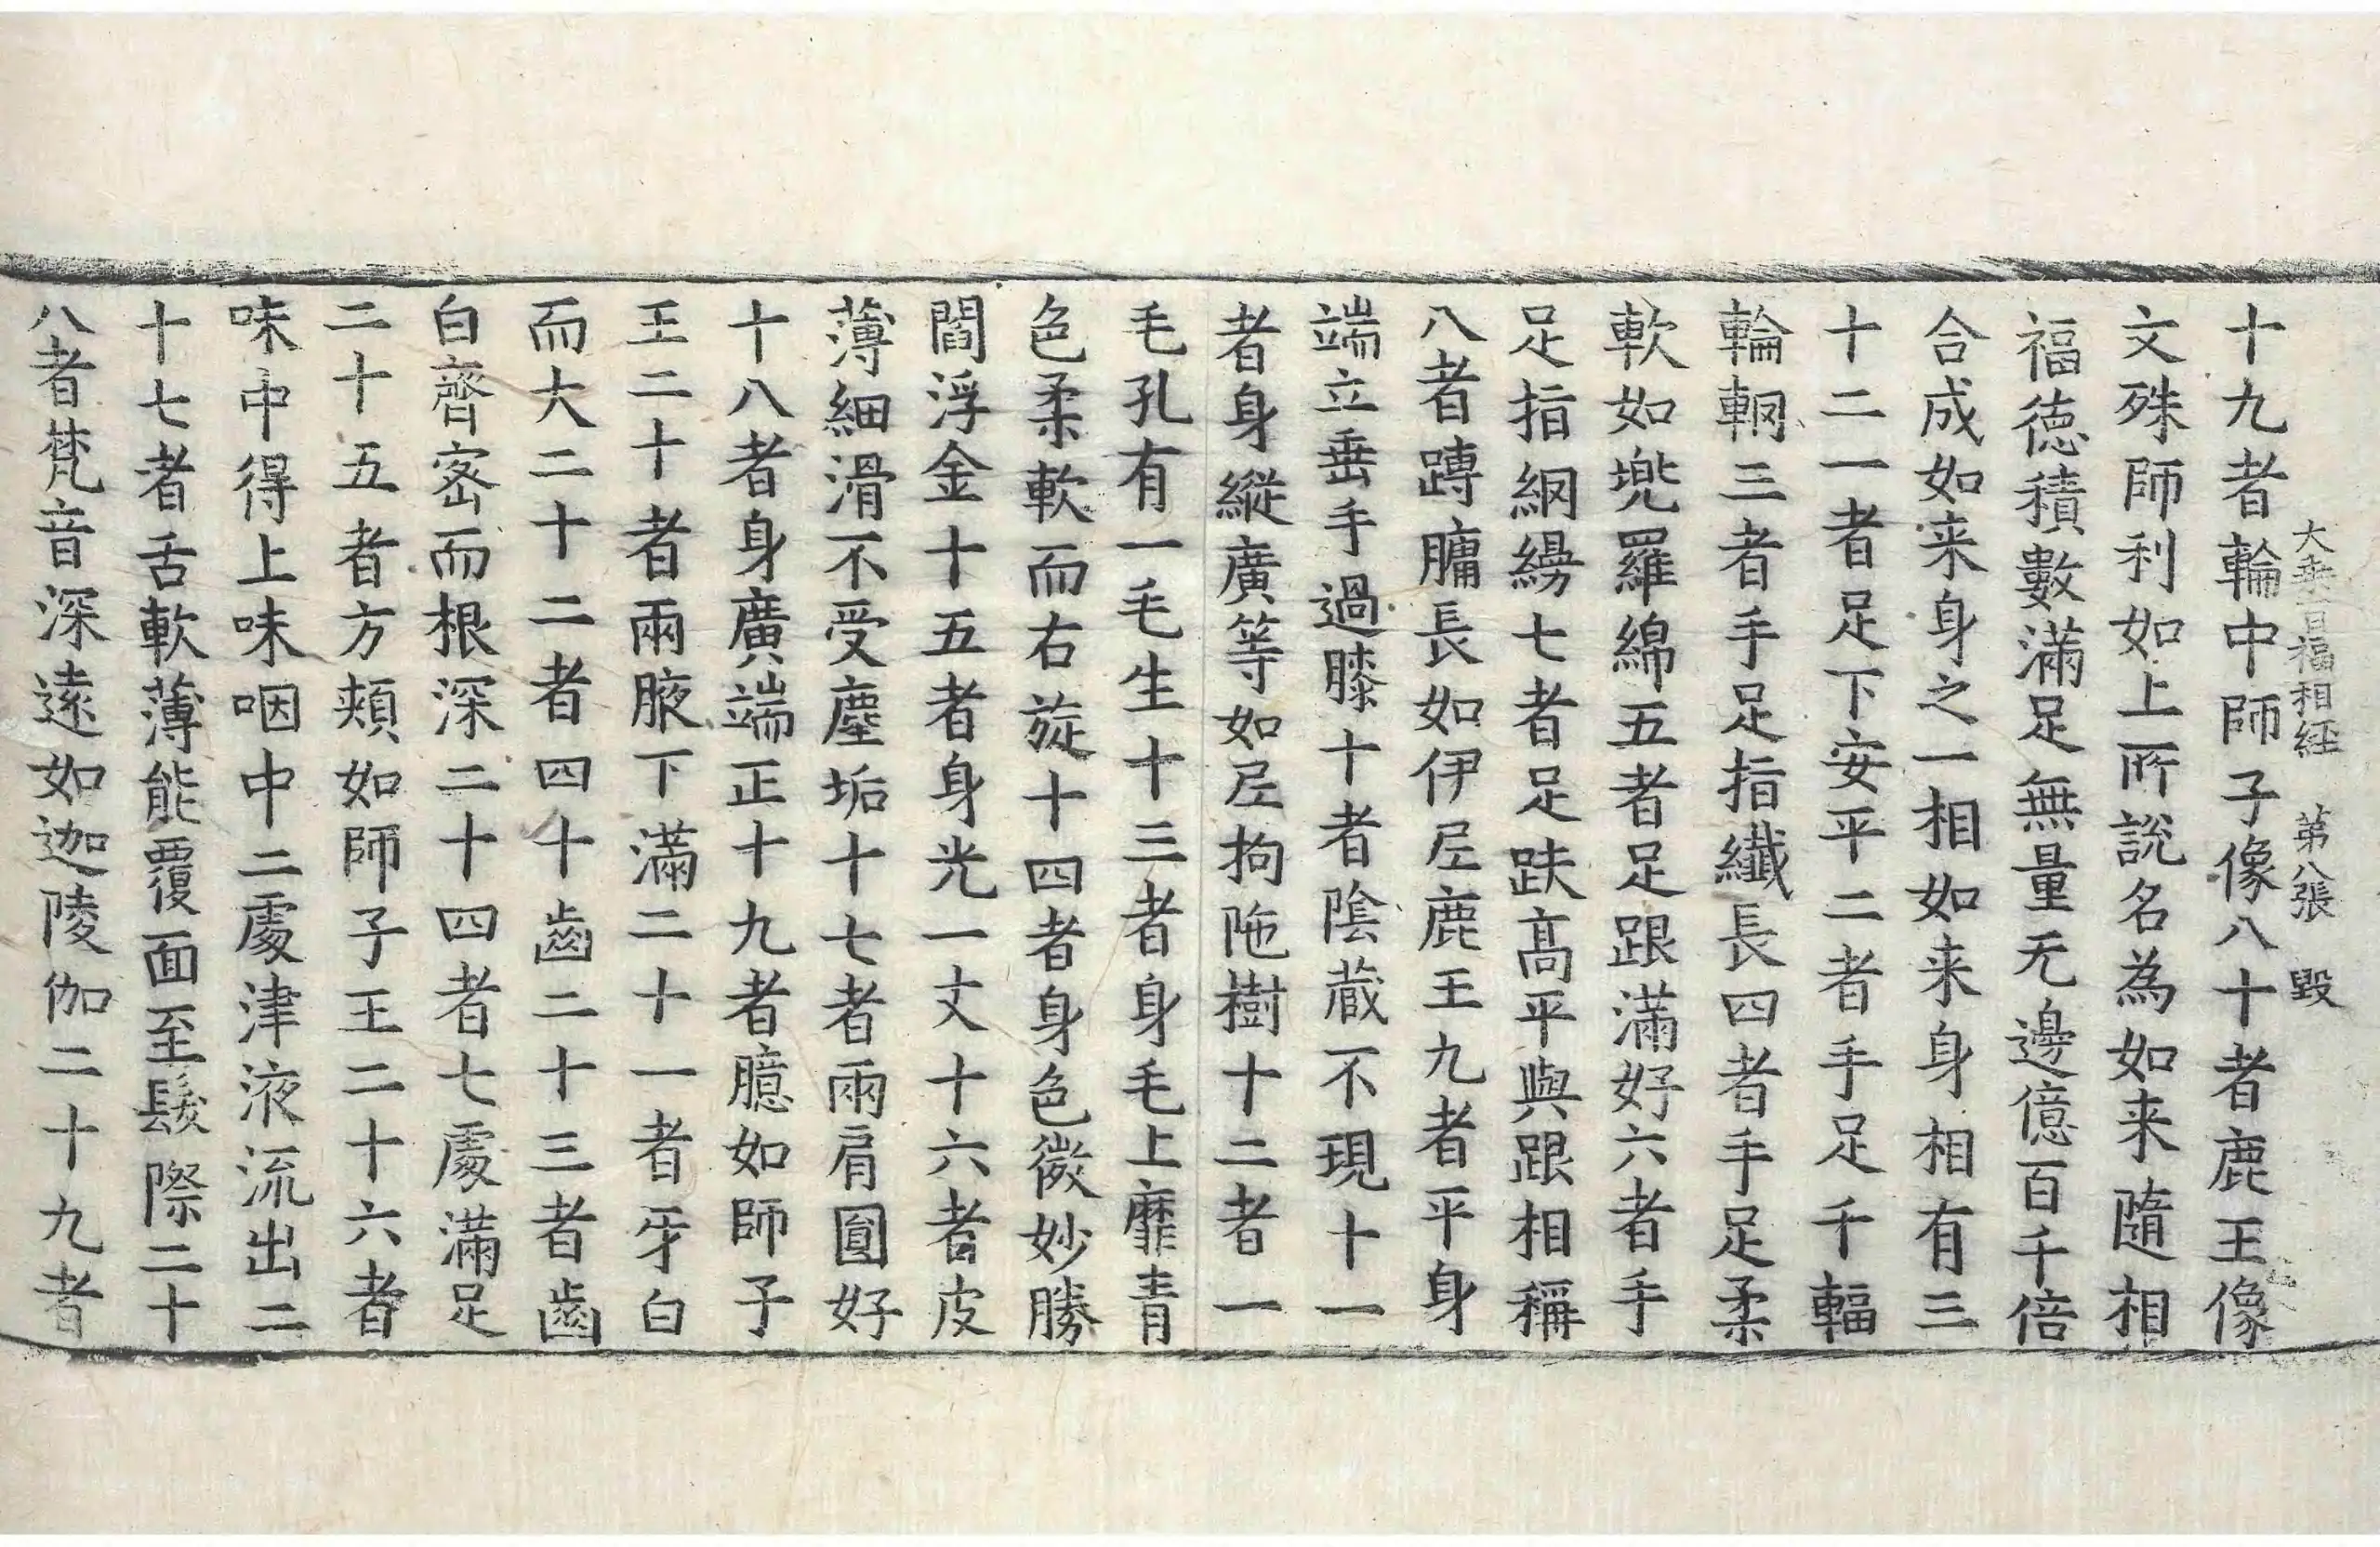 大乘百福相経 第八張 毀
十九者輪中師子像八十者鹿王像
文殊師利如上所說名為如来隨相
福德積數滿足無量无邊億百千倍
合成如来身之一相如来身相有三
十二一者足下安平二者手足千輻
輪輞三者手足指纖長四者手足柔
軟如兜羅綿五者足跟滿好六者手
足指網縵七者足趺高平與跟相稱
八者䏝𦟛長如伊𡰱鹿王九者平身
端立垂手過膝十者陰蔵不現十一
者身縱廣等如𡰱拘陁樹十二者一
毛孔有一毛生十三者身毛上靡青
色柔軟而右旋十四者身色微妙勝
閻浮金十五者身光一丈十六者皮
薄細滑不受塵垢十七者兩肩圓好
十八者身廣端正十九者臆如師子
王二十者兩腋下滿二十一者牙白
而大二十二者四十齒二十三者齒
白齊密而根深二十四者七處滿足
二十五者方頰如師子王二十六者
味中得上味咽中二處津液流出二
十七者舌軟薄能覆面至髮際二十
八者梵音深遠如迦陵伽二十九者